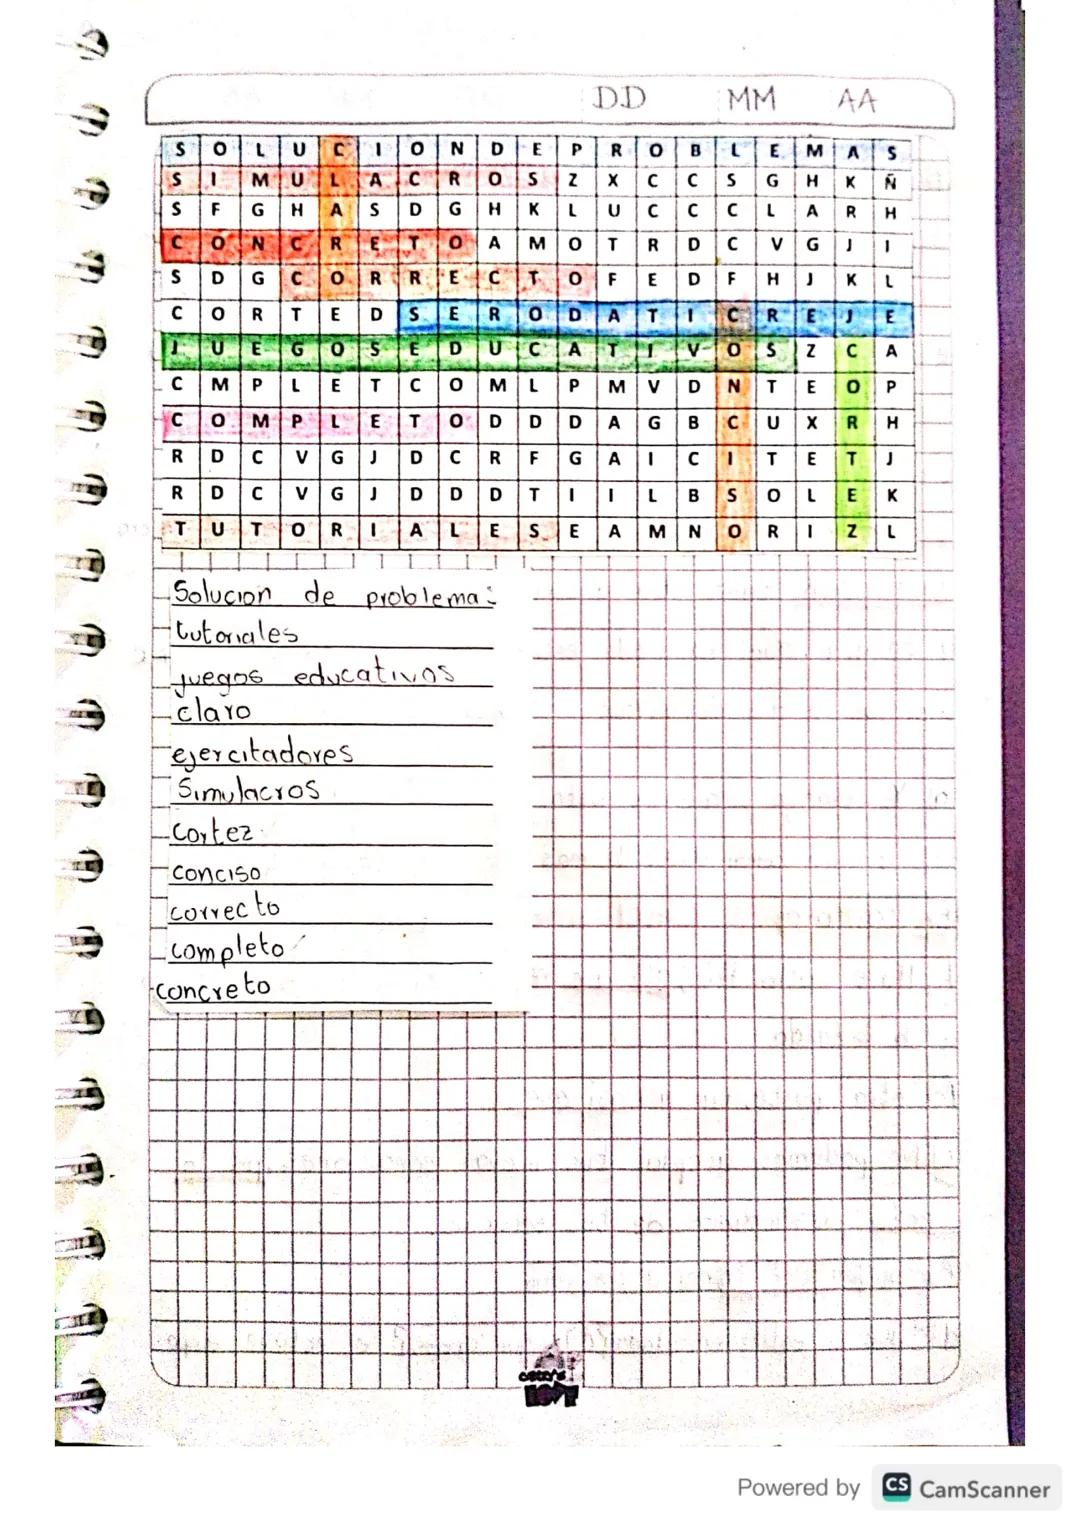 DD MM AA
S O L U C I O N D E P R O B L E M A S
S I M U L A C R O S Z X C C S G H K Ñ
S F G H A S D G H K L U C C C L A R H
C O N C R E T O A M O T R D C V G J I
S D G C O R R E C T O F E D F H J K L
C O R T E D S E R O D A T I C R E J E
J U E G O S E D U C A T I V O S Z C A
C M P L E T C O M L P M V D N T E O P
C O M P L E T O D D D A G B C U X R H
R D C V G J D C R F G A I C I T E T J
R D C V G J D D D T I I L B S O L E K
T U T O R I A L E S E A M N O R I Z L
Solucion de problemas
tutoriales
juegos educativos
claro
ejercitadores
Simulacros
Cortez
conciso
correcto
completo
concreto
LOVE
Powered by CS CamScanner